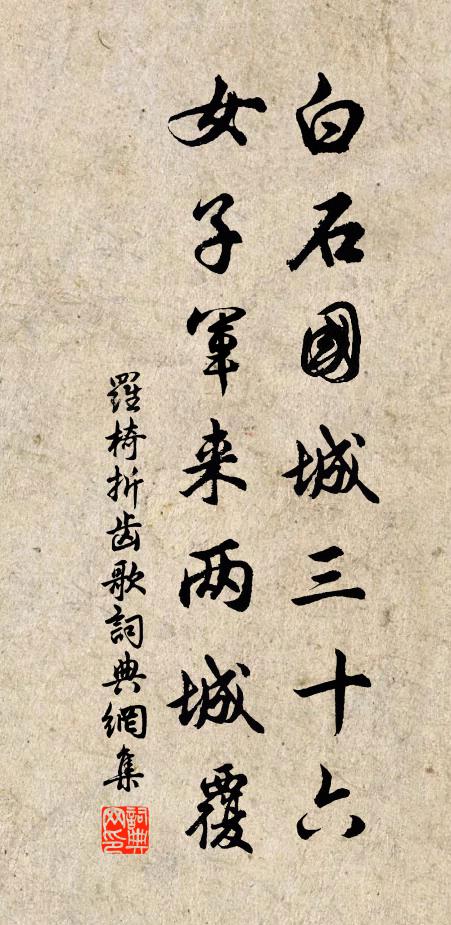 白石國城三十六
女子軍来两城覆
羅椅折齿歌詞典網集
詞典网印